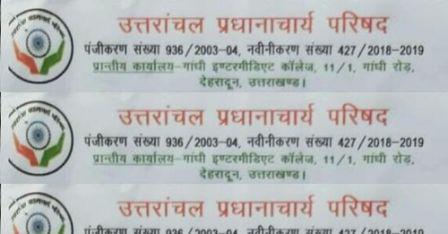 उत्तरांचल प्रधानाचार्य परिषद
पंजीकरण संख्या 936/2003-04, नवीनीकरण संख्या 427/2018-2019
प्रान्तीय कार्यालय-गांधी इण्टरमीडिएट कॉलेज, 11/1, गांधी रोड़,
देहरादून, उत्तराखण्ड।
उत्तरांचल प्रधानाचार्य परिषद
पंजीकरण संख्या 936/2003-04, नवीनीकरण संख्या 427/2018-2019
प्रान्तीय कार्यालय-गांधी इण्टरमीडिएट कॉलेज, 11/1, गांधी रोड़,
देहरादून, उत्तराखण्ड।
उत्तरांचल प्रधानाचार्य परिषद
पंजीकरण संख्या 936/2003-04, नवीनीकरण संख्या 427/2018-2019